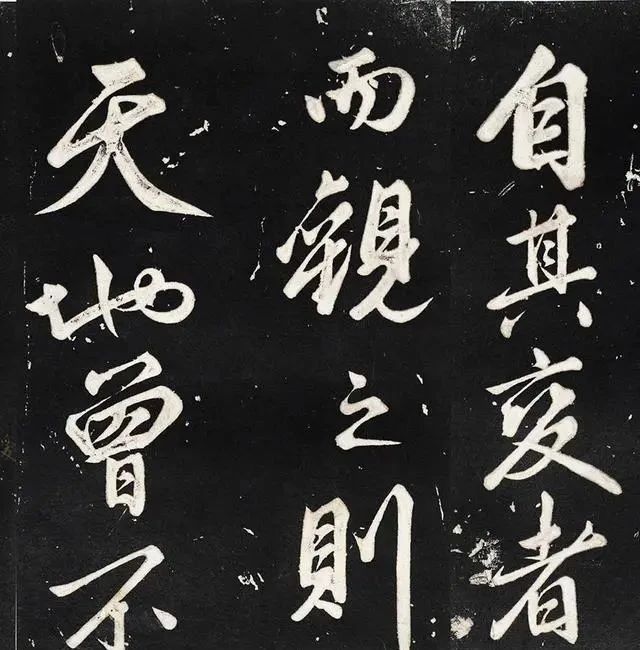 自其变者
而觀之則
天地曾不